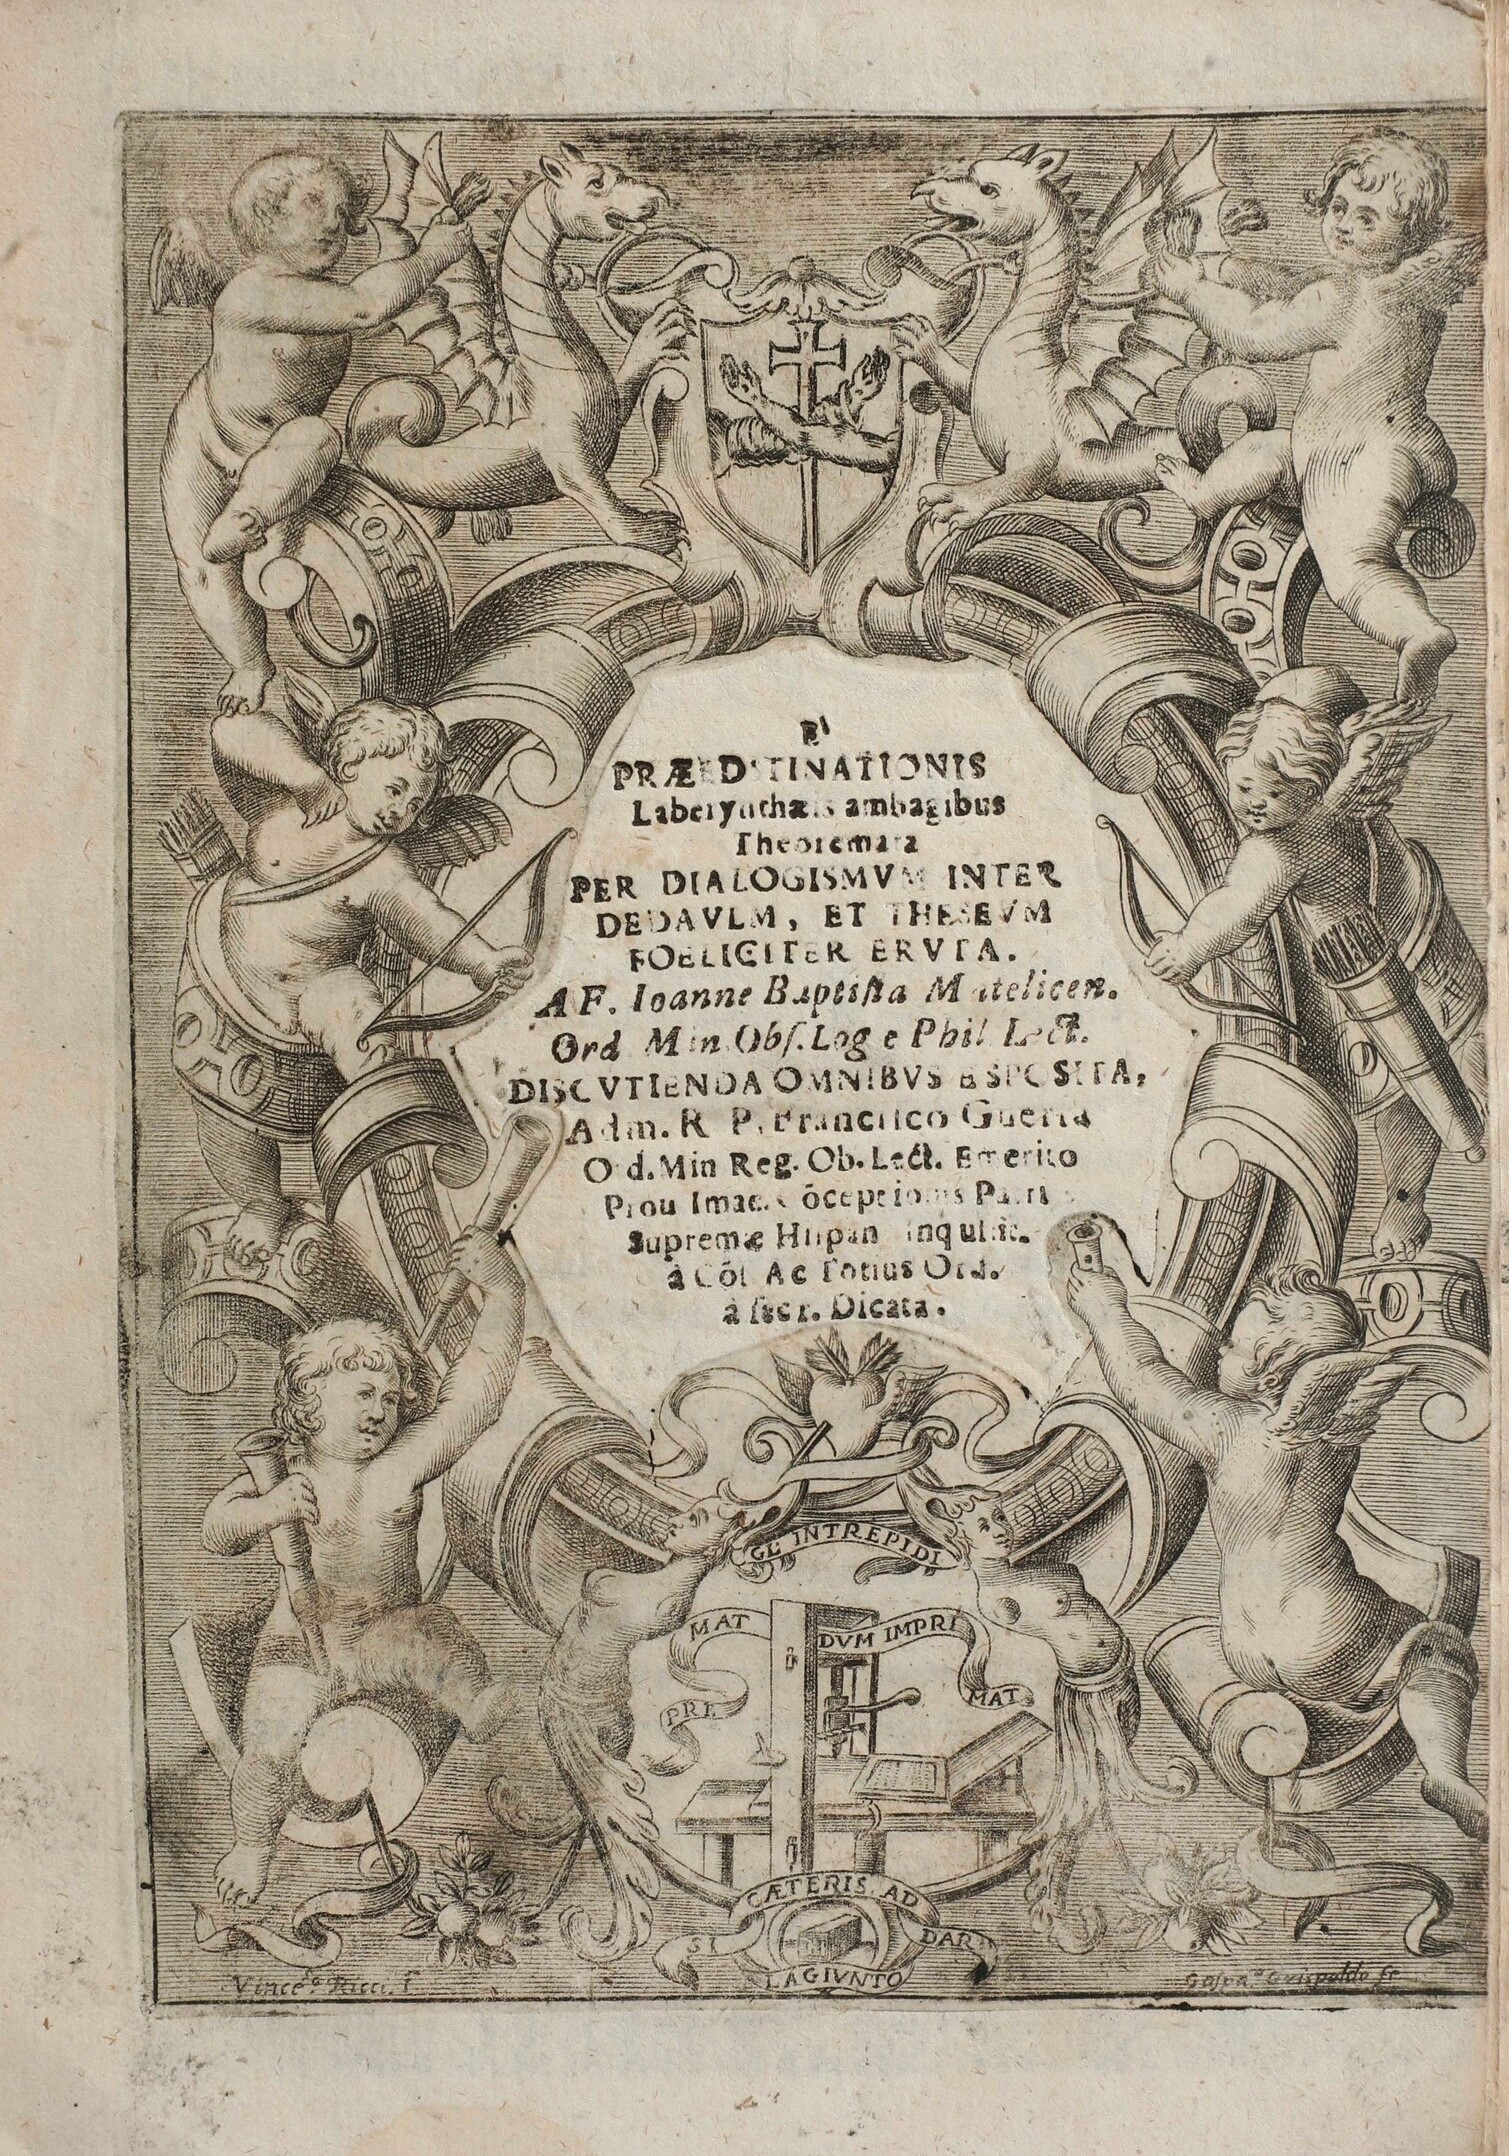 E'
PRÆEDSTINATIONIS
Laberynthæis ambagibus
Theoremata
PER DIALOGISMVM INTER
DEDAVLM, ET THESEVM
FOELICITER ERVTA.
A F. Ioanne Baptista Matelicen.
Ord Min Obs. Log e Phil Lect.
DISCVTIENDA OMNIBVS ESPOSITA,
Adm. R P. Francisco Guerra
Ord. Min Reg. Ob. Lect. Emerito
Prou Imac. Cõceptionis Patri
Supremæ Hispan Inquisit.
à Cõl Ac Totius Ord.
à secr. Dicata.
GL INTREPIDI
PRE MAT DVM IMPRI MAT
SI CÆTERIS AD DAR
LAGIVNTO
Vince.º Ricci. f